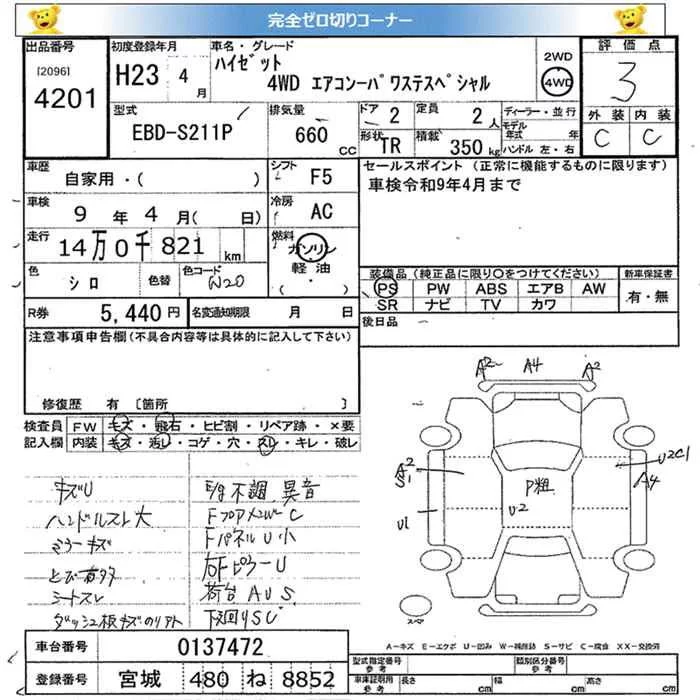 完全ゼロ切りコーナー
出品番号 [2096] 4201
初度登録年月 H23 4月
車名・グレード ハイゼット
4WD エアコンーパワステスペシャル
2WD 4WD
評価点 3
外装 内装 C C
型式 EBD-S211P
排気量 660 CC
ドア 2 形状 TR
定員 2人 積載 350 kg
ディーラー・並行
モデル年式 年
ハンドル 左・右
車歴 自家用・( )
シフト F5
車検 9年 4月 ( 日)
冷房 AC
走行 14万0千821 km
燃料 ガソリン 軽油 ( ・ )
色 シロ 色替 色コード W20
R券 5,440円 名変通知期限 月 日
セールスポイント (正常に機能するものに限ります)
車検令和9年4月まで
装備品(純正品に限り○をつけてください) 新車保証書
PS PW ABS エアB AW 有・無
SR ナビ TV カワ
後日品
注意事項申告欄(不具合内容等は具体的に記入して下さい)
修復歴 有 〔箇所 〕
検査員記入欄 FW キズ・飛石・ヒビ割・リペア跡・×要
内装 キズ・汚レ・コゲ・穴・スレ・キレ・破レ
キズU
ハンドルスレ大
ミラーキズ
とび有多
シートスレ
ダッシュ板キズのリアト
E/g不調 異音
Fフロアメンバー C
FパネルU小
右FピラーU
荷台AUS
下廻りSC
A2 A4 A2
A2 S1
U1
P粗
U2
U2C1
A4
スペア
A-キズ E-エクボ U-凹み W-補修跡 S-サビ C-腐食 XX-交換済
車台番号 0137472
登録番号 宮城 480 ね 8852
型式指定番号 参考 類別区分番号 参考
車庫証明用 参考 長さ cm 幅 cm 高さ cm